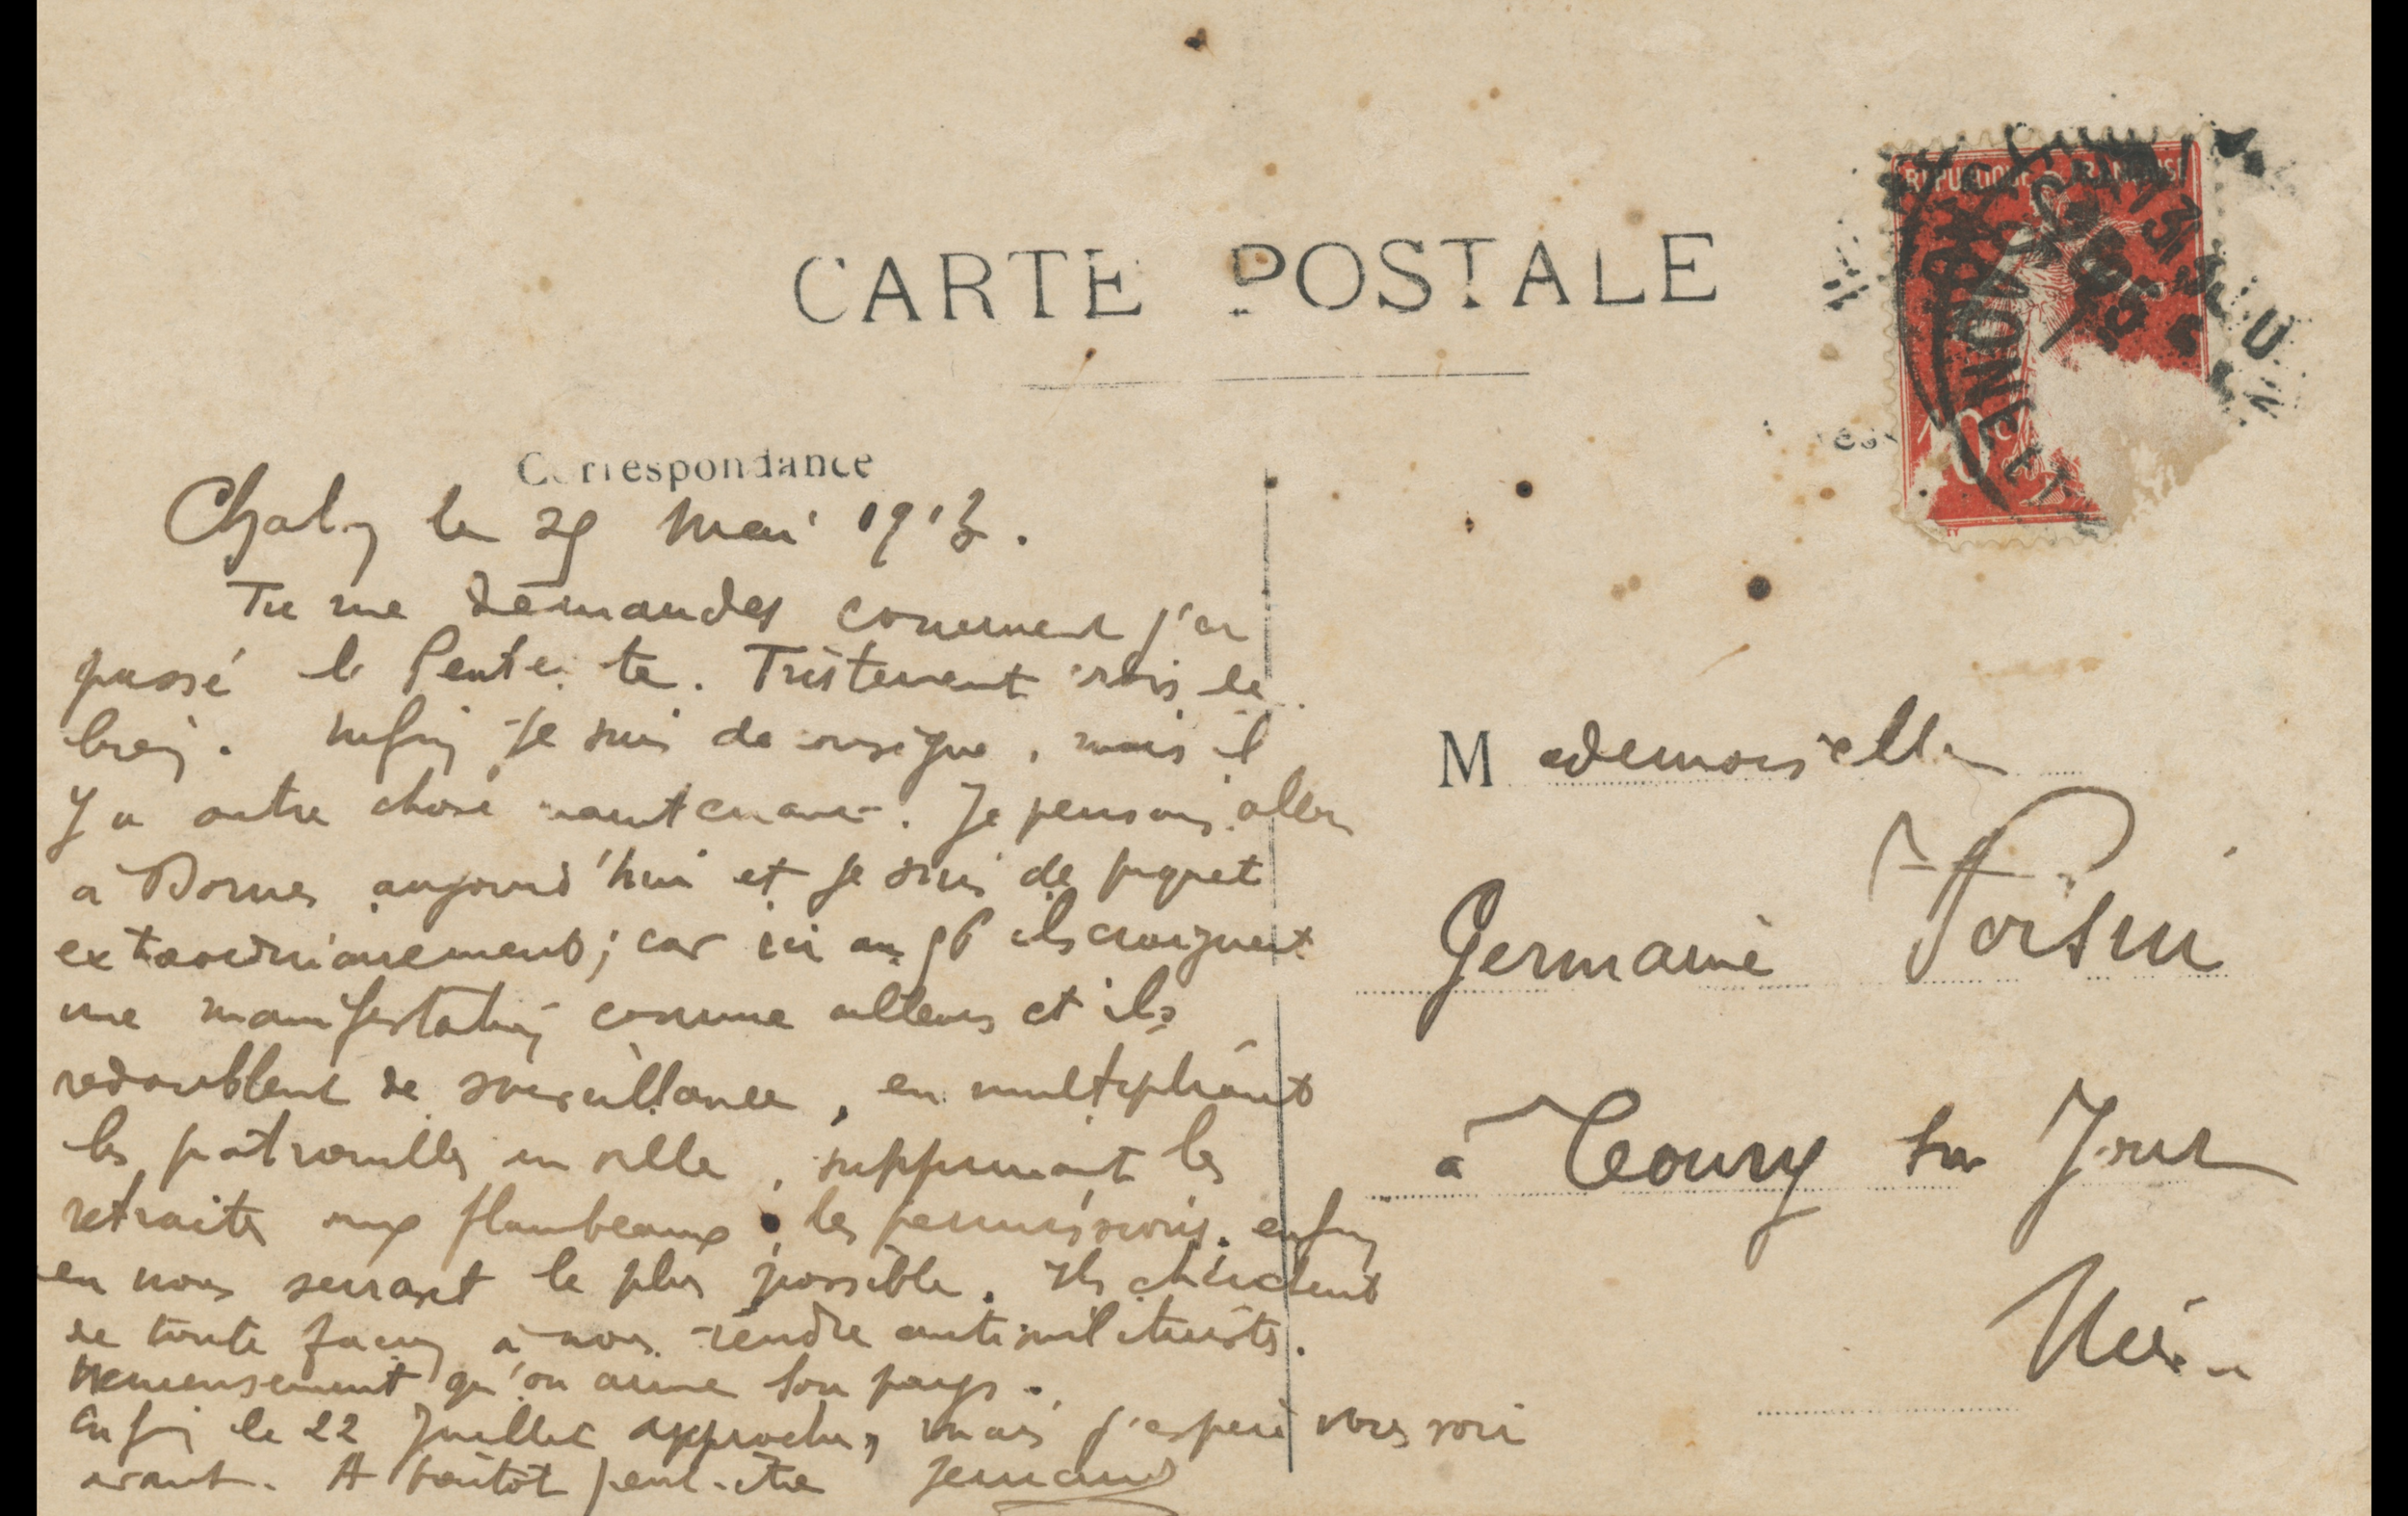 CARTE POSTALE
Correspondance
REPUBLIQUE FRANÇAISE
10 c
YONNE
le 29 mai 1913.
Tu me demandes comment j'ai
passé la Pentecôte. Tristement crois le
bien. Enfin je suis de consigne, mais il
y a autre chose maintenant. Je pensais aller
à Bornes aujourd'hui et je suis de piquet
extraordinairement; car ici au ils craignent
une manifestation comme ailleurs et ils
redoublent de surveillance, en multipliant
les patrouilles en ville, supprimant les
retraites aux flambeaux, les permissions, enfin
en nous serrant le plus possible. Ils cherchent
de toute façon à nous rendre antimilitaristes.
Heureusement qu'on aime son pays.
Enfin le 22 Juillet approche, mais j'espère vous voir
avant. A bientôt peut-être Fernand
Mademoiselle
Germaine
à Toury sur Jour
Nièvre